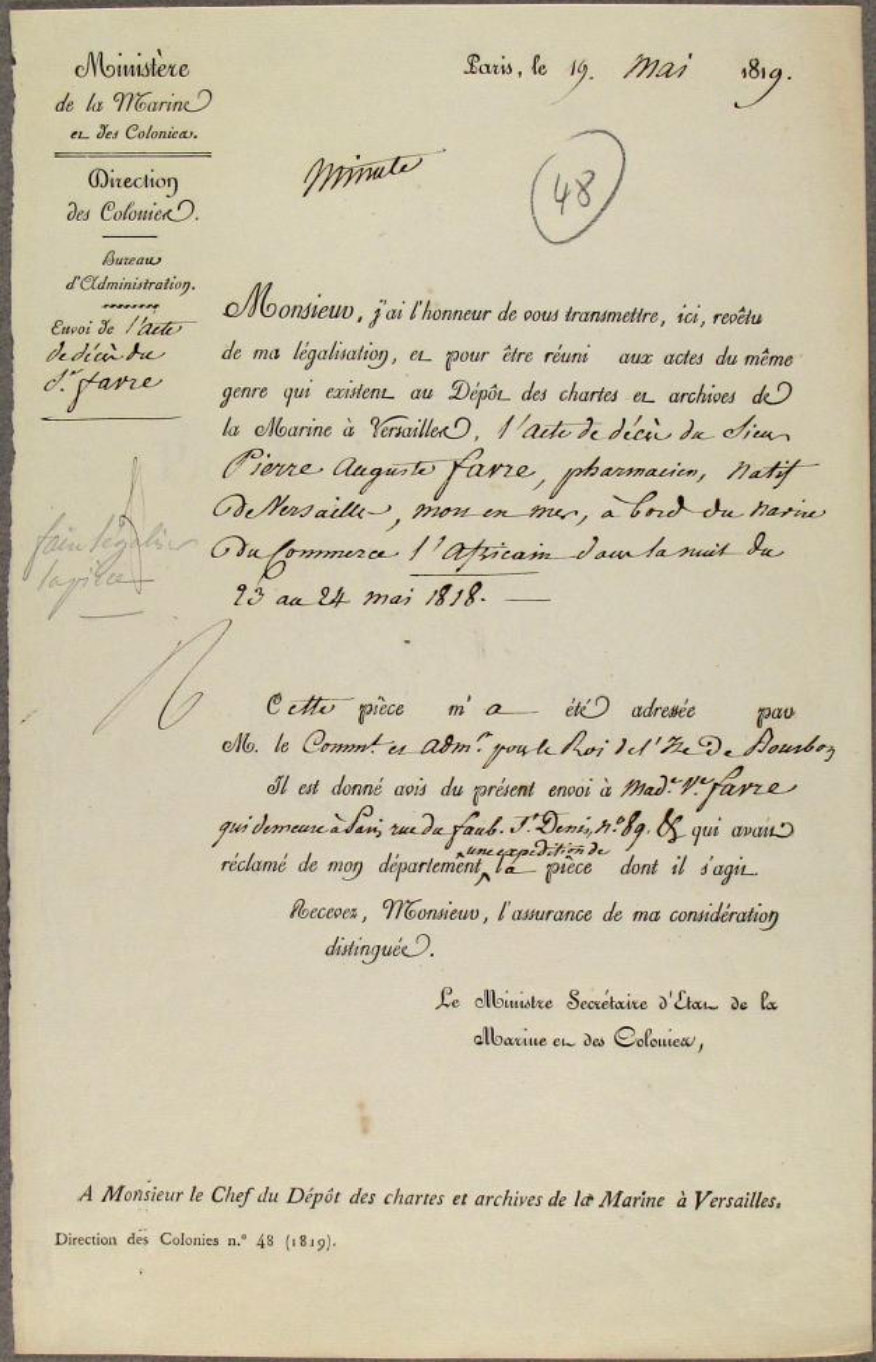 Ministère
de la Marine
et des Colonies.
Direction
des Colonies.
Bureau
d'Administration.
Envoi de l'acte
de décès du
S.r favre
faire légaliser
la pièce
Paris, le 19. Mai 1819.
Minute
48
Monsieur, j'ai l'honneur de vous transmettre, ici, revêtu
de ma légalisation, et pour être réuni aux actes du même
genre qui existent au Dépôt des chartes et archives de
la Marine à Versailles, l'acte de décès du Sieur
Pierre Auguste favre, pharmacien, natif
de Versailles, mort en mer, à bord du navire
du Commerce l'Africain dans la nuit du
23 au 24 mai 1818.
Cette pièce m'a été adressée par
M. le Comm.t et adm.r pour le Roi de l'Ile de Bourbon
Il est donné avis du présent envoi à Mad.e V.e favre
qui demeure à Paris, rue du faub. S.t Denis, n.o 89. qui avait
réclamé de mon département une expédition de la pièce dont il s'agit.
Recevez, Monsieur, l'assurance de ma considération
distinguée.
Le Ministre Secrétaire d'Etat de la
Marine et des Colonies,
A Monsieur le Chef du Dépôt des chartes et archives de la Marine à Versailles.
Direction des Colonies n.° 48 (1819).